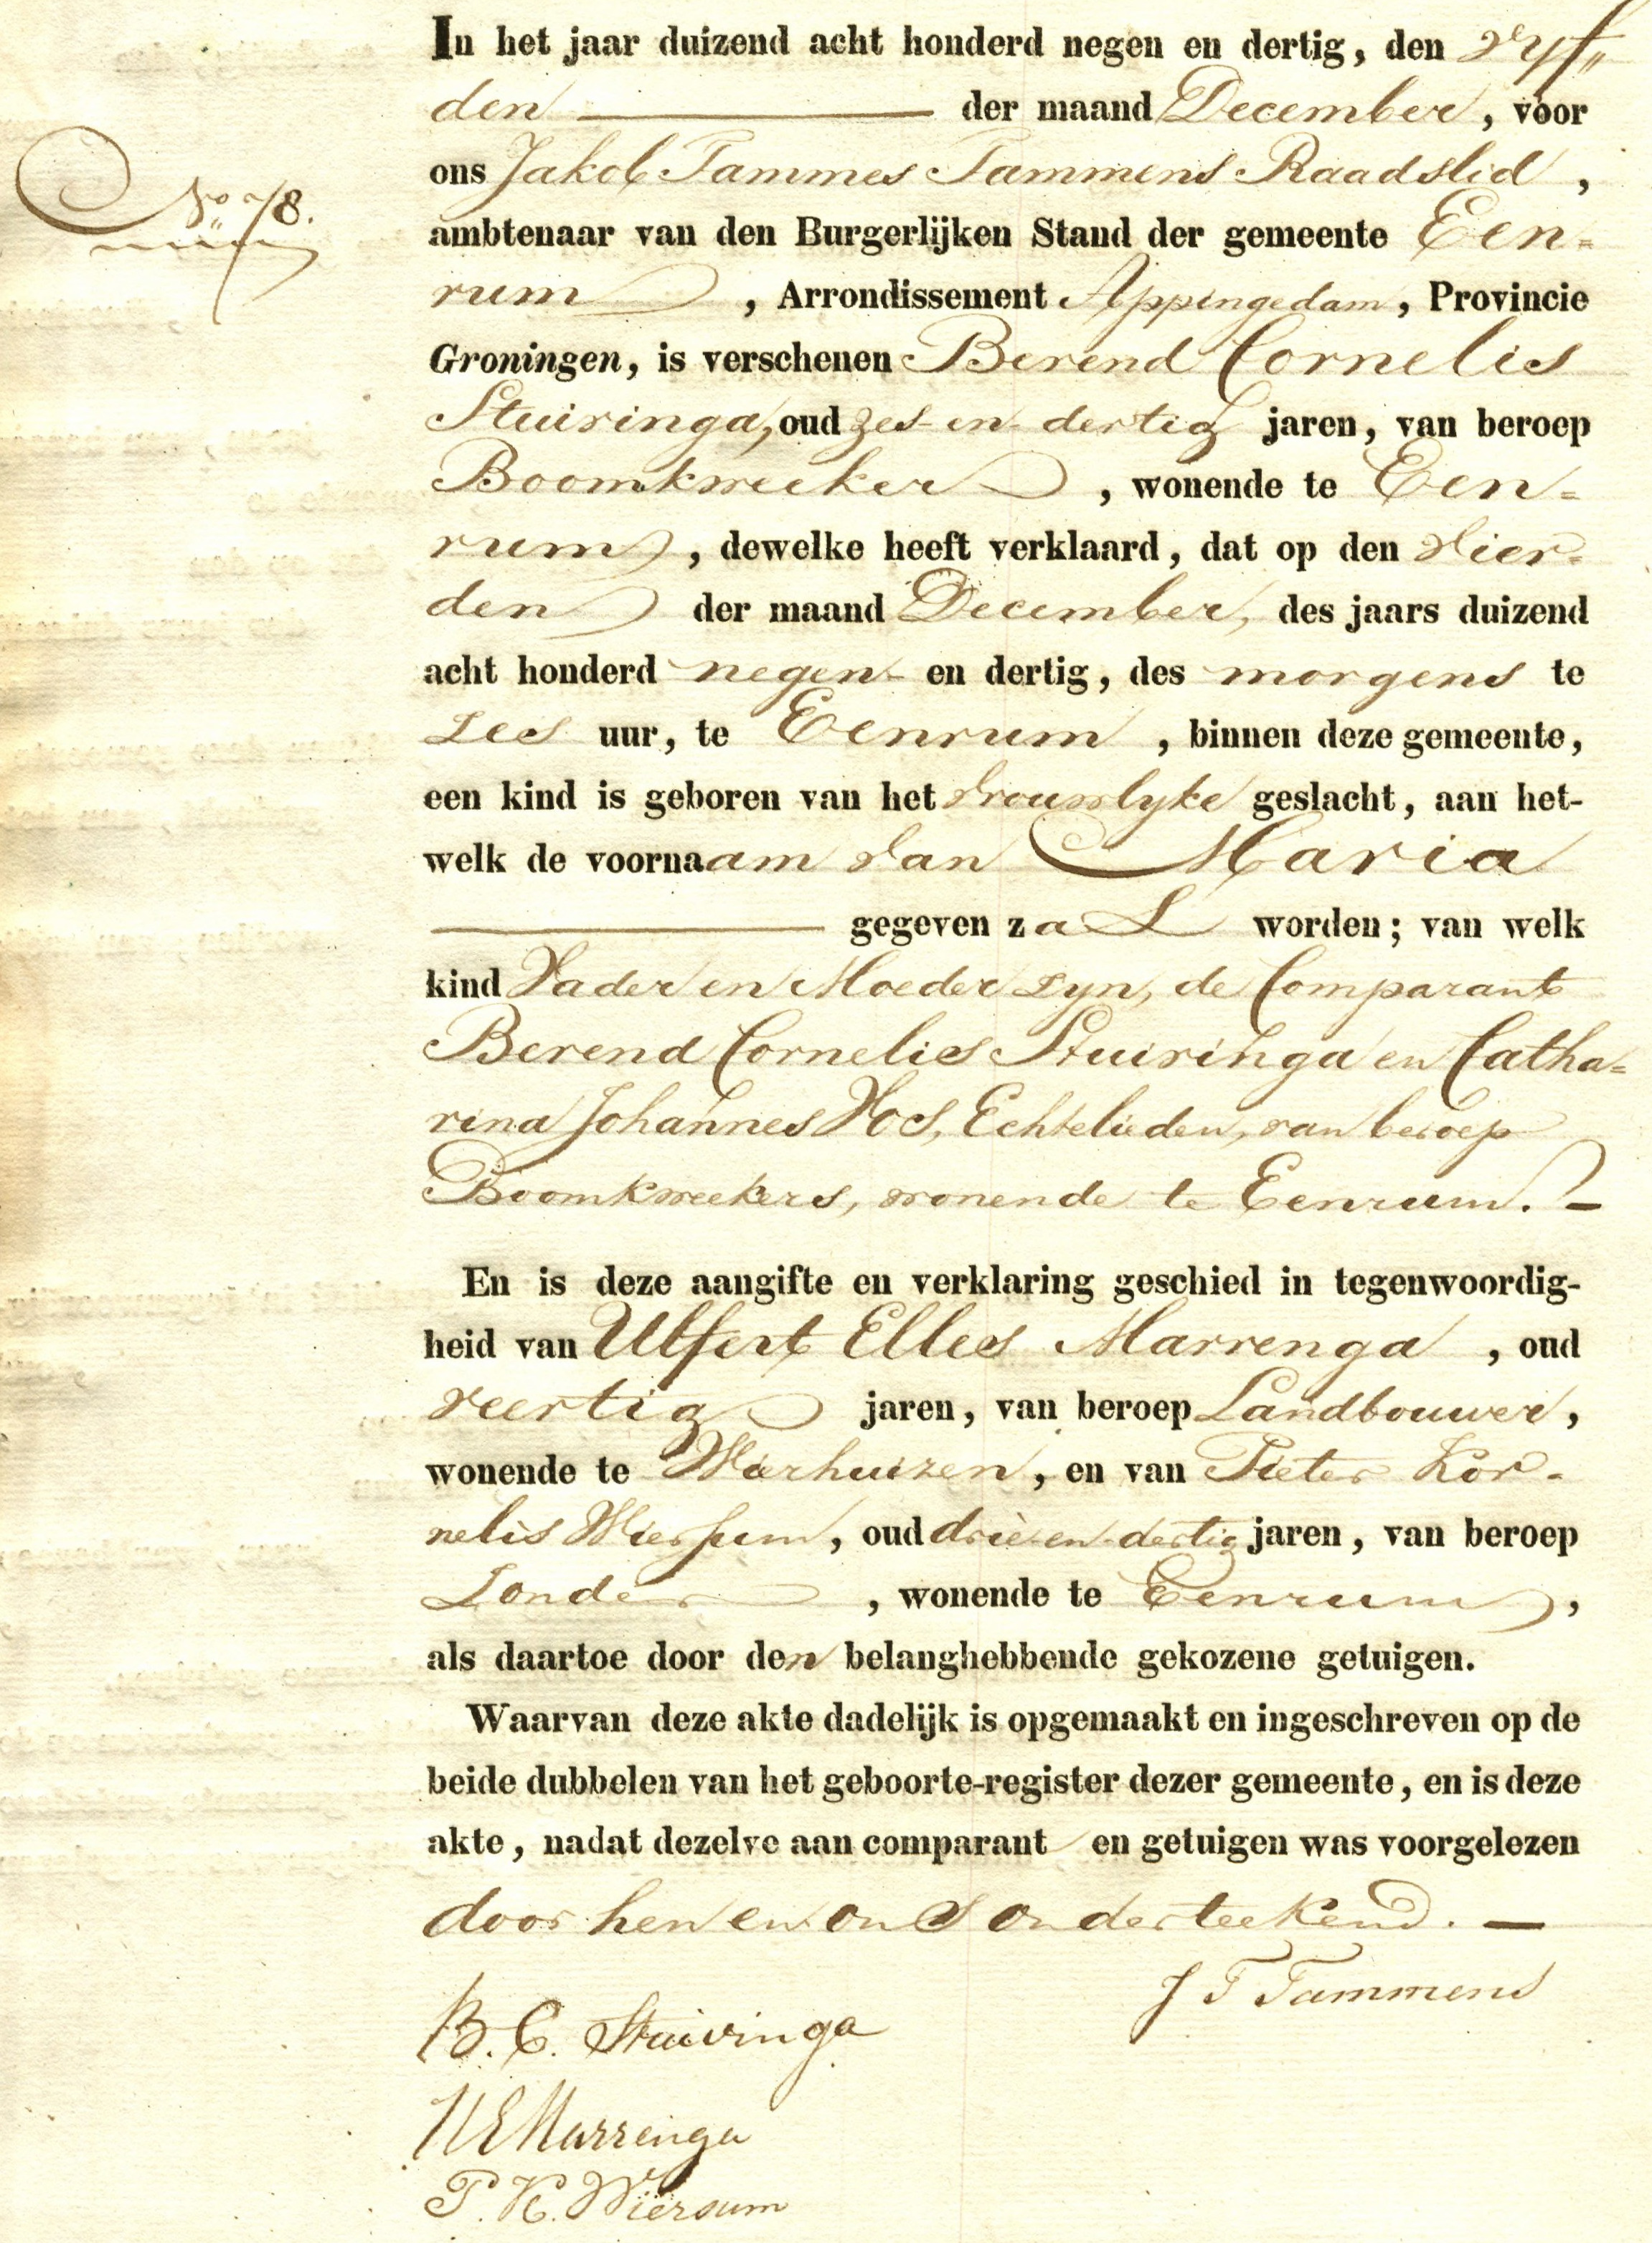 In het jaar duizend acht honderd negen en dertig, den vyf„
den der maand December, voor
ons Jakob Tammes Tammens Raadslid,
No 78.
ambtenaar van den Burgerlijken Stand der gemeente Een=
rum, Arrondissement Appingedam, Provincie
Groningen, is verschenen Berend Cornelis
Stuivinga, oud zes en dertig jaren, van beroep
Boomkweeker, wonende te Een=
rum, dewelke heeft verklaard, dat op den vier-
den der maand December, des jaars duizend
acht honderd negen en dertig, des morgens te
zes uur, te Eenrum, binnen deze gemeente,
een kind is geboren van het vrouwlyke geslacht, aan het-
welk de voornaam van Maria
gegeven zal worden; van welk
kind Vader en Moeder zyn, de Comparant
Berend Cornelis Stuivinga en Catha=
rina Johannes Vos, Echtelieden, van beroep
Boomkweekers, wonende te Eenrum. –
En is deze aangifte en verklaring geschied in tegenwoordig-
heid van Ulfert Elles Marrenga, oud
veertig jaren, van beroep Landbouwer,
wonende te Wierhuizen, en van Pieter Kor-
nelis Wiersum, oud drie en dertig jaren, van beroep
zonder, wonende te Eenrum,
als daartoe door den belanghebbende gekozene getuigen.
Waarvan deze akte dadelijk is opgemaakt en ingeschreven op de
beide dubbelen van het geboorte-register dezer gemeente, en is deze
akte, nadat dezelve aan comparant en getuigen was voorgelezen
door hen en ons onderteekend. –
J T Tammens
B. C. Stuivinga
U E Marrenga
P. K. Wiersum